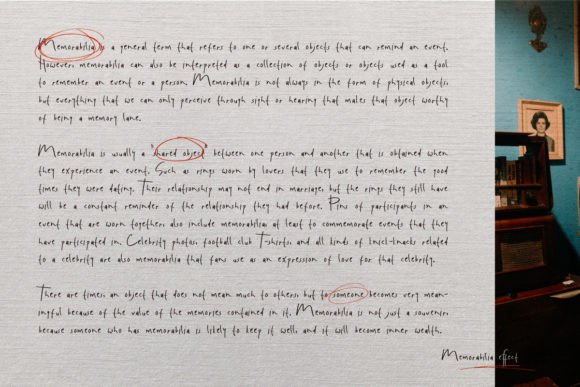 Memorabilia is a general term that refers to one or several objects that can remind an event.
However, memorabilia can also be interpreted as a collection of objects or objects used as a tool
to remember an event or a person. Memorabilia is not always in the form of physical objects,
but everything that we can only perceive through sight or hearing that makes that object worthy
of being a memory lane.
Memorabilia is usually a "shared object" between one person and another that is obtained when
they experience an event. Such as rings worn by lovers that they use to remember the good
times they were dating. Their relationship may not end in marriage, but the rings they still have
will be a constant reminder of the relationship they had before. Pins of participants in an
event that are worn together, also include memorabilia, at least to commemorate events that they
have participated in. Celebrity photos, football club T-shirts, and all kinds of knick-knacks related
to a celebrity are also memorabilia that fans use as an expression of love for that celebrity.
There are times, an object that does not mean much to others, but to someone becomes very mean-
ingful because of the value of the memories contained in it. Memorabilia is not just a souvenir,
because someone who has memorabilia is likely to keep it well, and it will become inner wealth.
Memorabilia effect